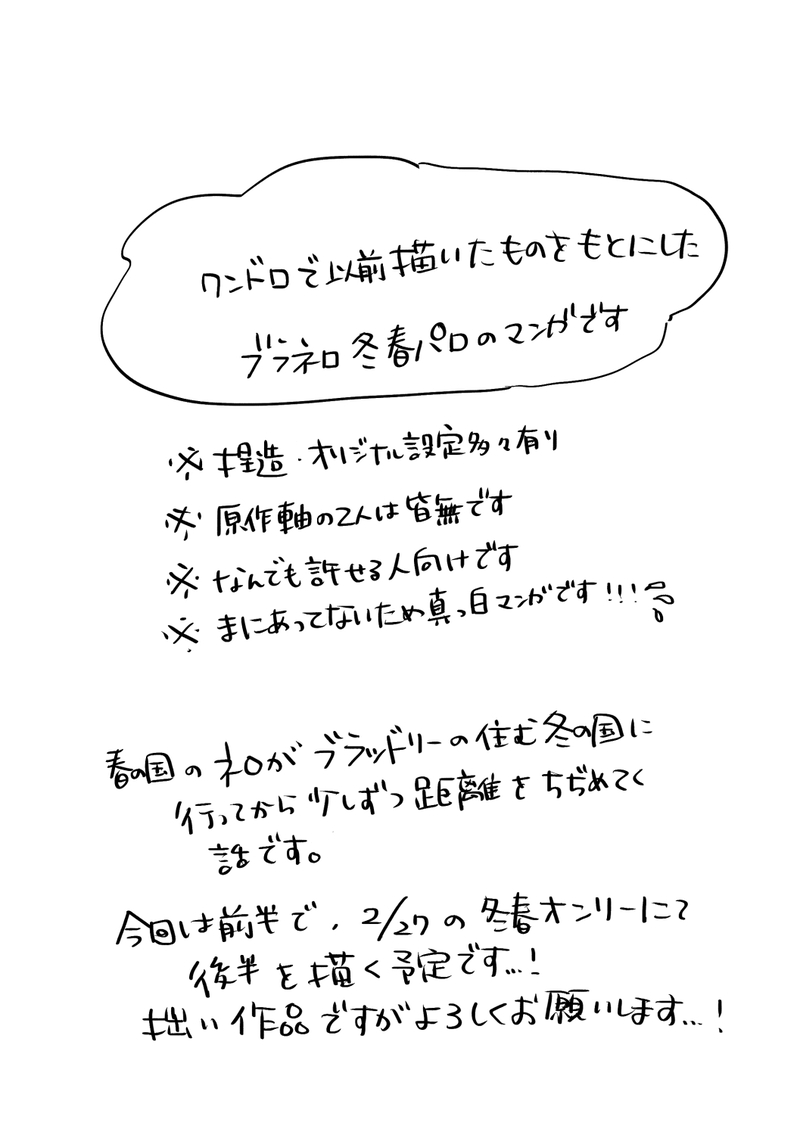 ワンドロで以前描いたものをもとにした
ブラネロ冬春パロのマンガです
※捏造・オリジナル設定多々有り
※原作軸の2人は皆無です
※なんでも許せる人向けです
※まにあってないため真っ白マンガです!!!
春の国のネロがブラッドリーの住む冬の国に
行ってから少しずつ距離をちぢめてく
話です。
今回は前半で、2/27の冬春オンリーにて
後半を描く予定です...!
拙い作品ですがよろしくお願いします...!